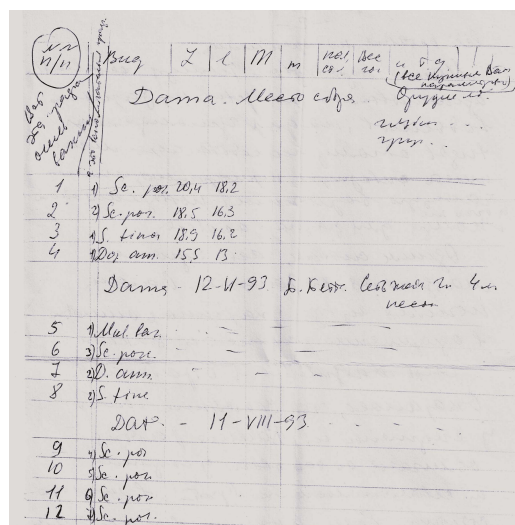 №№ п/п Вид L l M m пол Вес и т.д.
(все нужные Вам параметры)
Дата. Место сбора Орудие
глуб...
грун...
1 1) Sc. por. 20,4 18,2
2 2) Sc. por. 18,5 16,3
3 1) S. tinca 18,9 16,2
4 1) D. ann. 15,5 13
Дата - 12-VI-93 4 м
песок
5 1) Mul. bar.
6 3) Sc. por.
7 2) D. ann.
8 2) S. tinc.
Дат - 11-VIII-93
9 4) Sc. por
10 5) Sc. por.
11 6) Sc. por.
12 7) Sc. por.